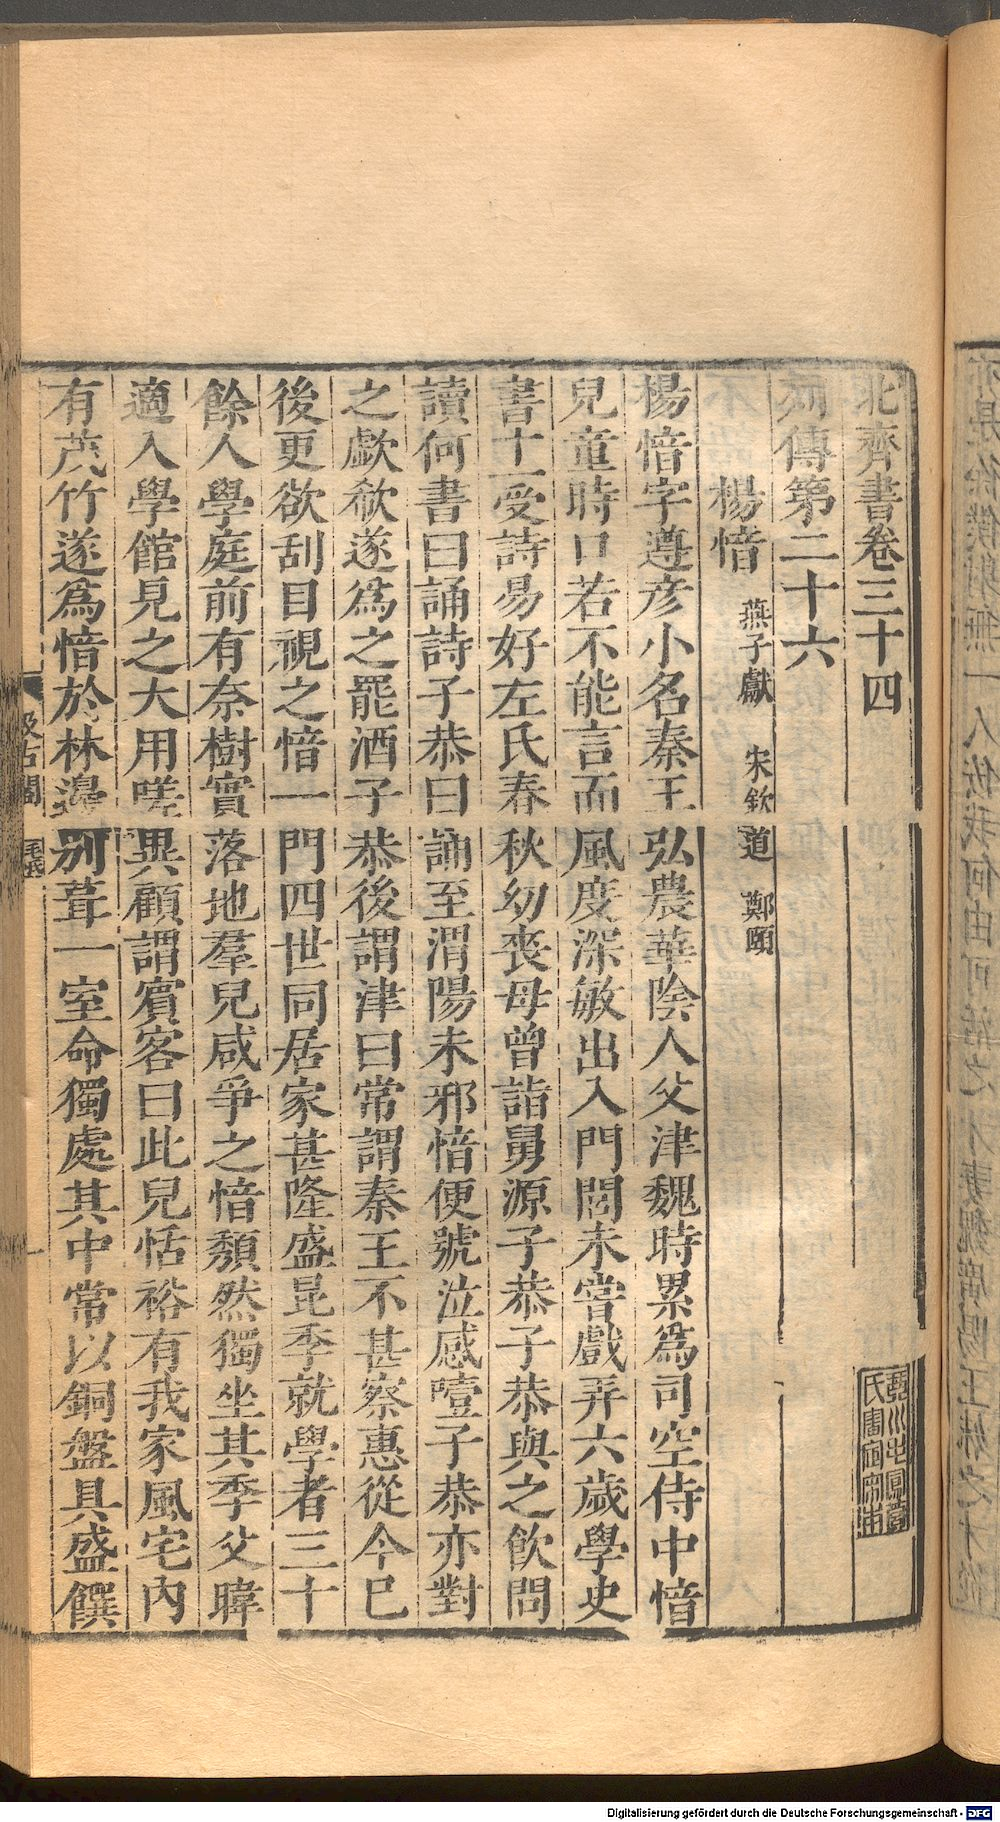 北齊書卷三十四
列傳第二十六
楊愔 燕子獻 宋欽道 鄭頤
楊愔字遵彥小名秦王弘農華陰人父津魏時累為司空侍中愔
兒童時口若不能言而風度深敏出入門閭未嘗戲弄六歲學史
書十一受詩易好左氏春秋幼喪母曾詣舅源子恭子恭與之飲問
讀何書曰誦詩子恭曰誦至渭陽未邪愔便號泣感噎子恭亦對
之歔欷遂為之罷酒子恭後謂津曰常謂秦王不甚察惠從今已
後更欲刮目視之愔一門四世同居家甚隆盛昆季就學者三十
餘人學庭前有柰樹實落地羣兒咸爭之愔頹然獨坐其季父暐
適入學館見之大用嗟異顧謂賓客曰此兒恬裕有我家風宅內
有茂竹遂為愔於林邊別葺一室命獨處其中常以銅盤具盛饌
汲古閣 毛氏
Digitalisierung gefördert durch die Deutsche Forschungsgemeinschaft - DFG